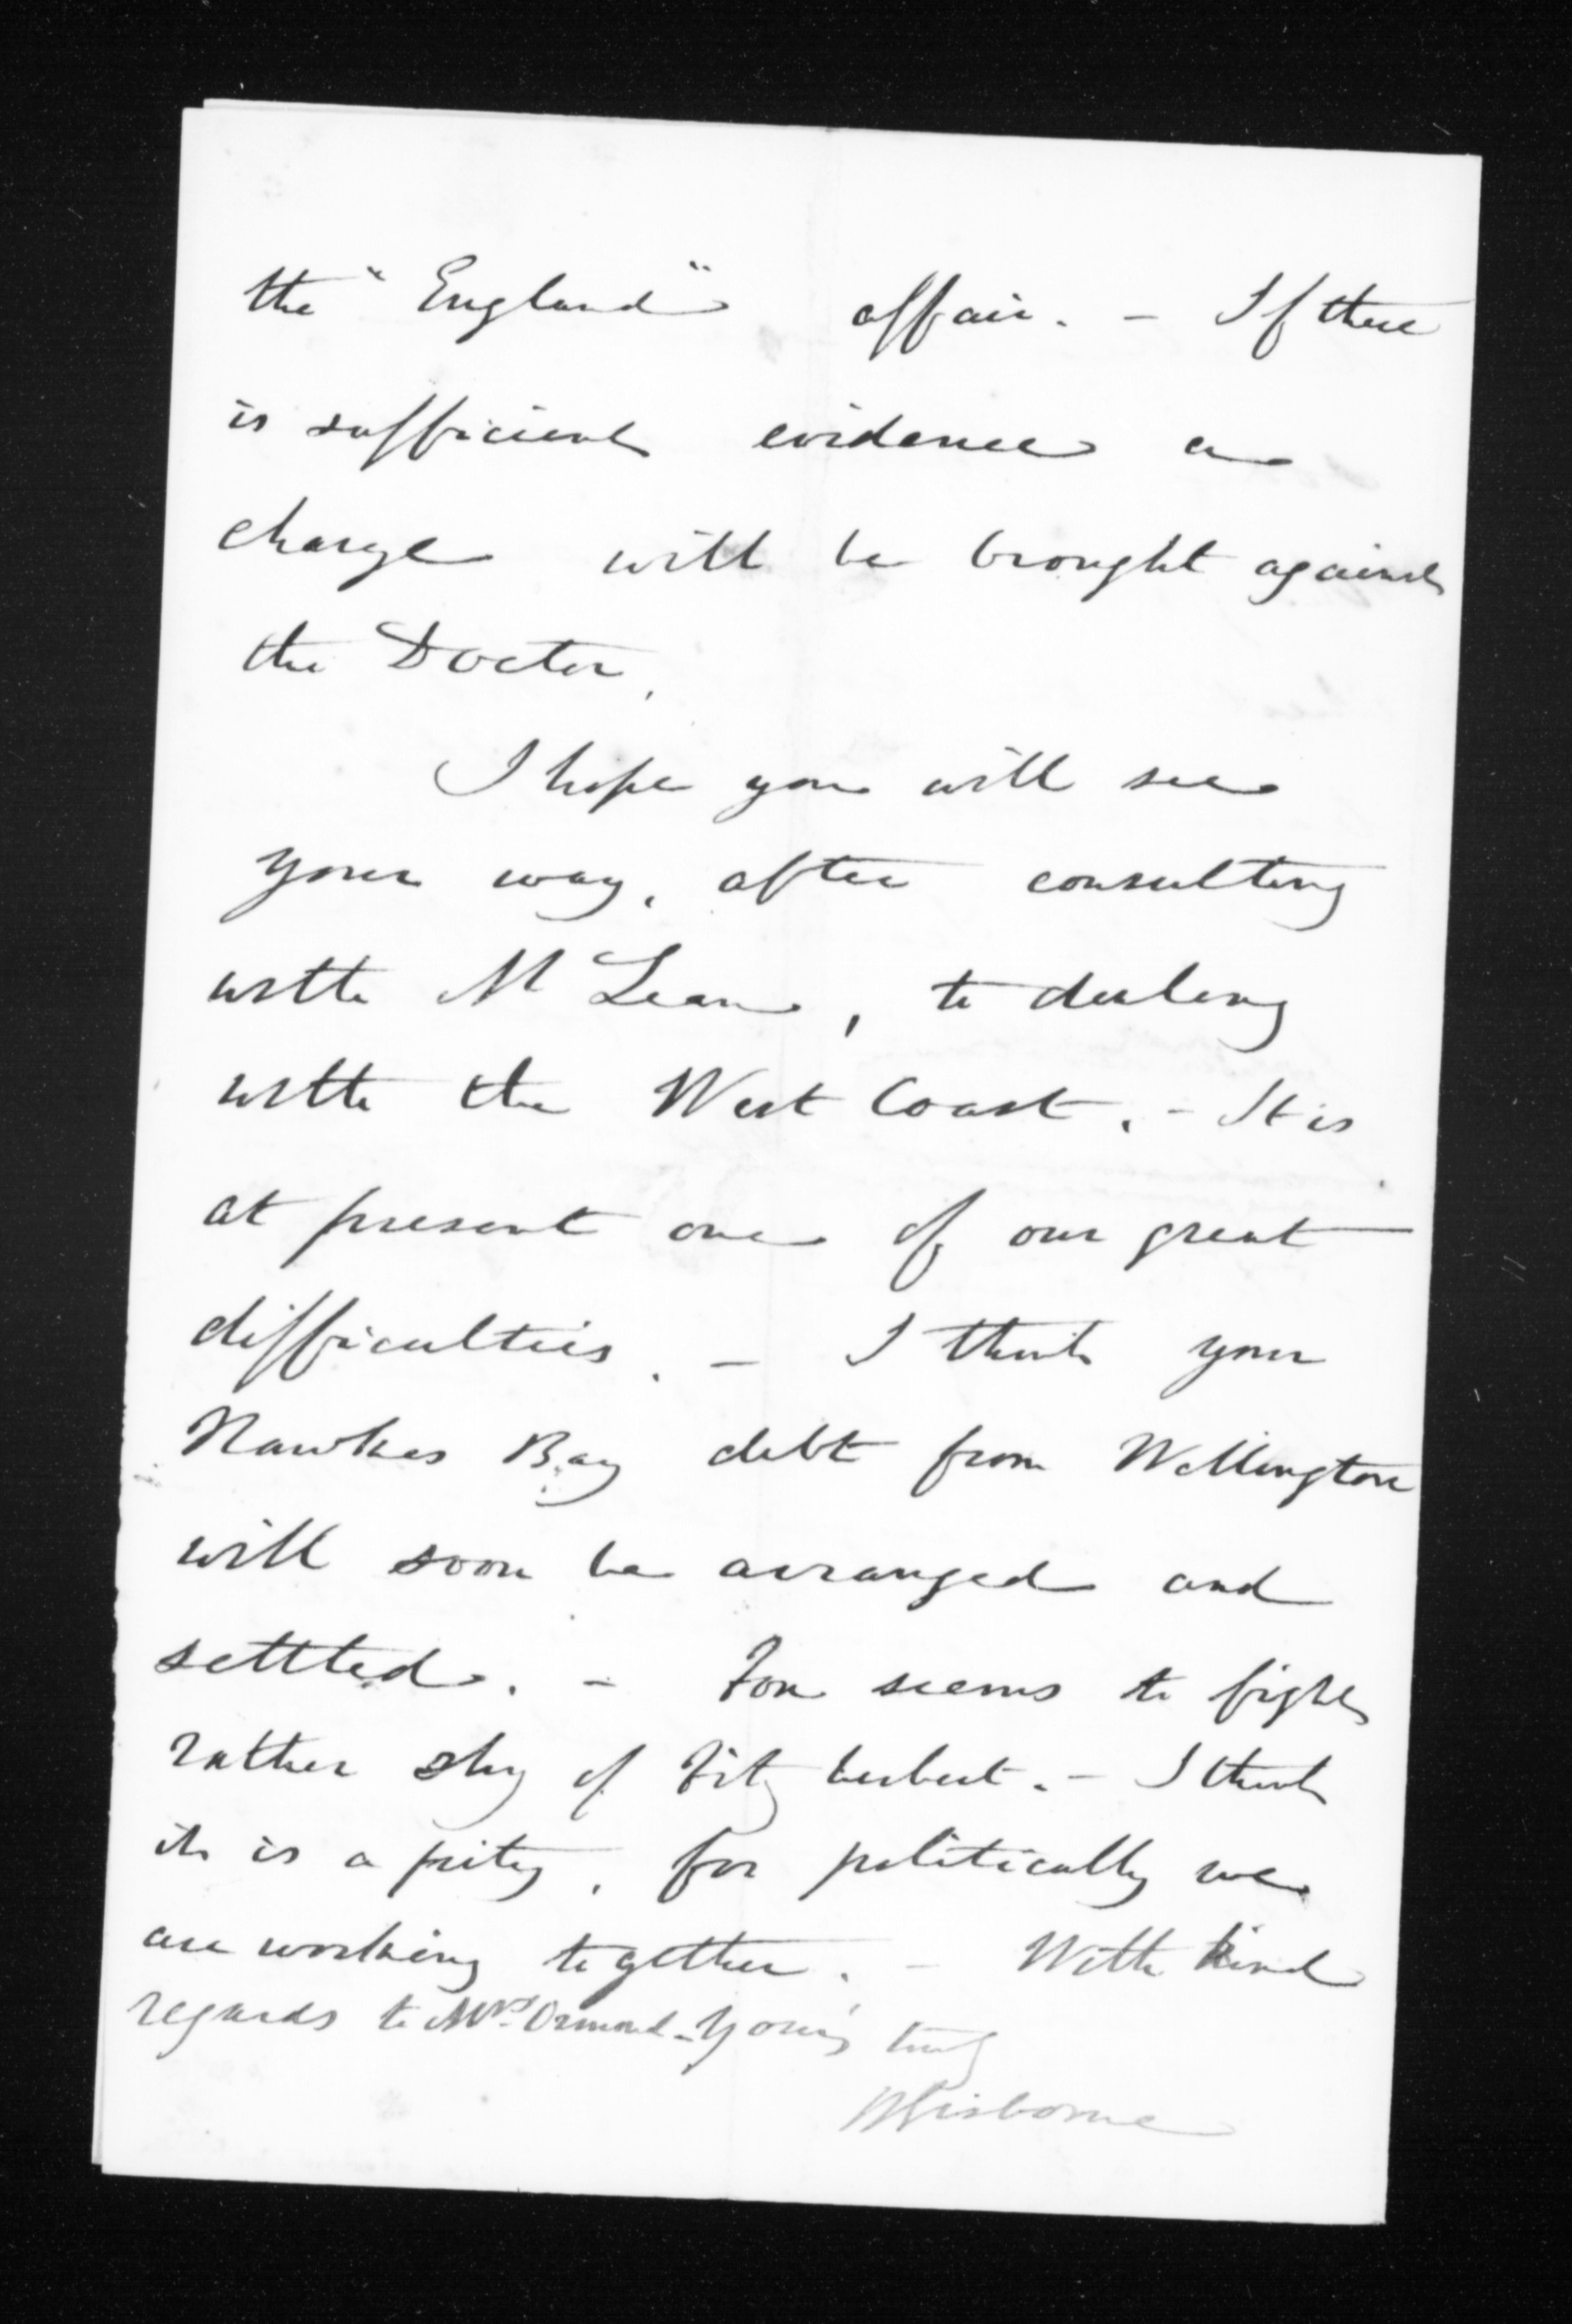 the "England" affair. - If there
is sufficient evidence a
charge will be brought against
the Doctor.
I hope you will see
your way, after consulting
with McLean, to dealing
with the West Coast. - It is
at present one of our great
difficulties. - I think your
Hawkes Bay debt from Wellington
will soon be arranged and
settled. - Fox seems to fight
rather shy of Fitzherbert. - I think
it is a pity, for politically we
are working together. - With kind
regards to Mrs. Ormond - Yours truly
WGisborne